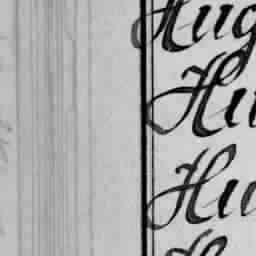 Hug
Hu
Hu